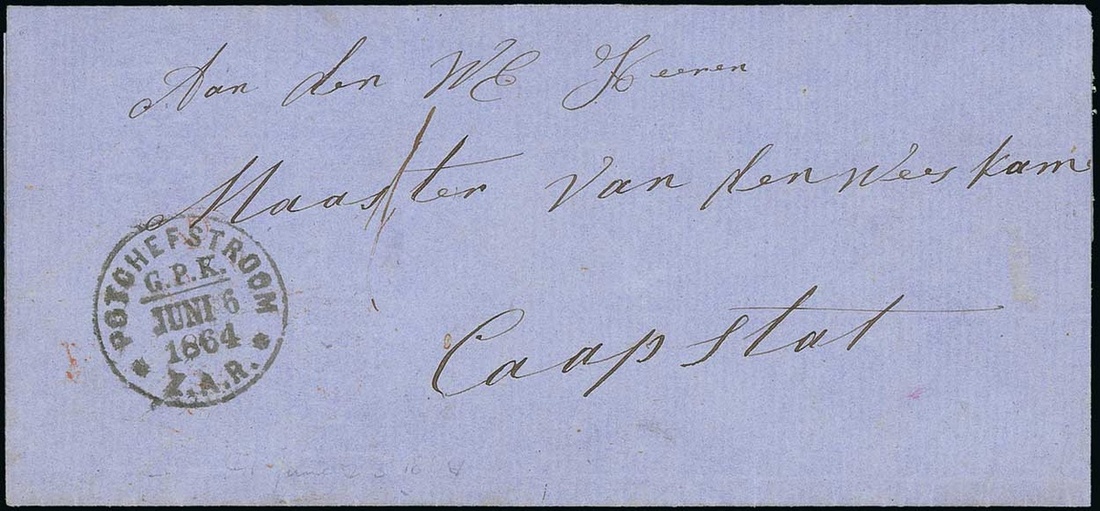 Aan den WE Heeren
Maaster van den wees kam
Caapstat
POTCHEFSTROOM
G.P.K.
JUNI 6
1864
Z.A.R.